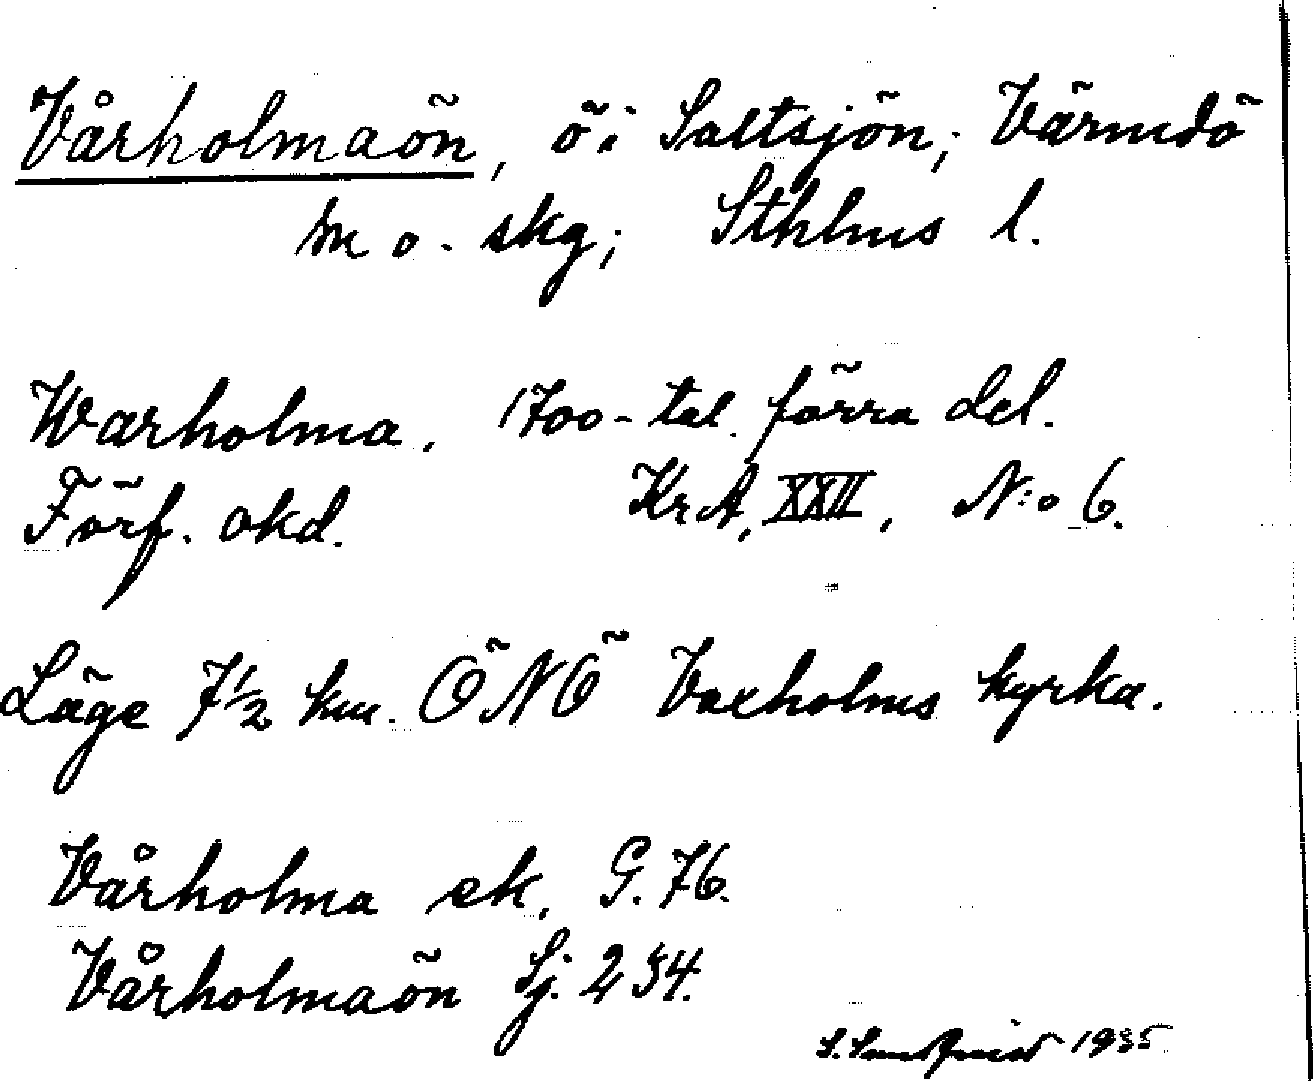 Vårholmaön, ö i Saltsjön; Värmdö
m o. skg; Sthlms l.
Warholma. 1700-tal. förra del.
Förf. okd. KrA, XXII, N:o 6.
Läge 7½ km. ÖNÖ Vaxholms kyrka.
Vårholma ek. G. 76.
Vårholmaön Sj. 234.
S. Sundqvist 1935